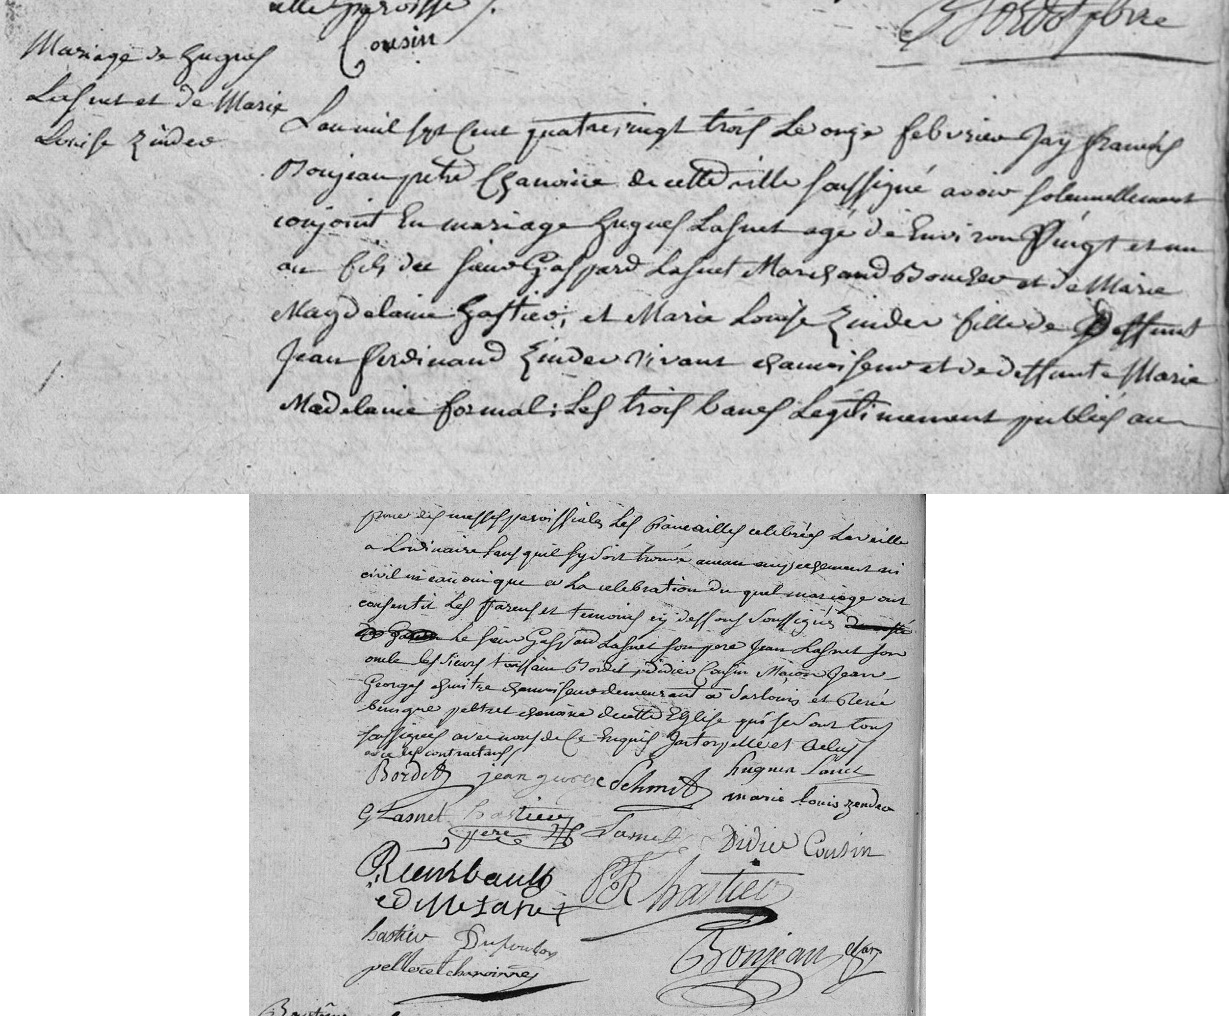 cette paroisse /.
Cousin
Mariage de hugues
Lasnet et de Marie
Louise Zinder
L'an mil sept cent quatrevingt trois Le onze febvrier Jay françois
Bonjean pretre Chanoine de cette ville soussigné avoir solennellement
conjoint En mariage hugues Lasnet agé de Environ Vingt et un
an fils du sieur Gaspard Lasnet Marchand Boucher et de Marie
Magdelaine hastier, et Marie Louise Zinder fille de deffunt
Jean ferdinand Zinder vivant chamoiseur et de deffunte Marie
Madelaine formal; Les trois bancs Legitimement publiés au
prone des messes paroissiales Les fiancailles celebrées La veille
a Lordinaire sans quil sy soit trouvé aucun empechement ni
civil ni canonique a La celebration du quel mariage ont
consenti Les Parens et temoins cy dessous soussignés
Le sieur Gaspard Lasnet son pere Jean Lasnet son
oncle les sieurs toussain Bordet, didier Cousin Maçon Jean
Georges chmitre chamoiseur demeurant a Sarlouis et René
pelteret chanoine de cette Eglise qui se sont tous
soussignés avec nous de Ce Enquis Interpellés et
avec les contractans
Bordet jean george Schmit hugues Lanet
marie louis zender
G Lasnet hastier
pere Lasnet Didier Cousin
Rembault
hastier
hastier
pelteret chanoinne
Bonjean